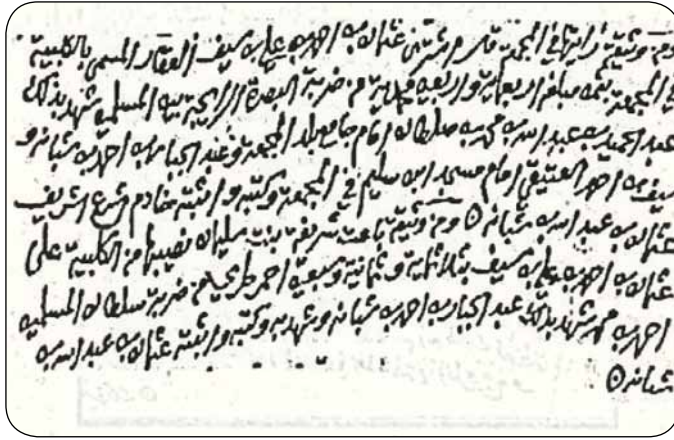 ومن وثيقة في المجمعة قاسم مشتري عثمان بن احمد بن علي بن سيف العقار المسمى بالكلبية
في المجمعة بثمن مبلغ اربعماية واربعين محمدية من ضربة البصرة الرايجة بين المسلمين شهد بذلك
عبد الحميد بن عبد الله بن محمد بن سلطان امام جامع بلد المجمعة وعبد الجبار بن احمد بن شبانه و
سيف بن احمد العتيقي امام مسجد ابن سليم في المجمعة وكتبه واثبته خادم الشرع الشريف
عثمان بن عبد الله بن شبانه ۞ ومن وثيقة باعت شريفة بنت سليمان نصيبها من الكلبية على
عثمان بن احمد بن علي بن سيف بثلاثماية وثمانية وسبعين احمر من ضربة سلطان المسلمين
احمد بن محمد شهد بذلك عبد الجبار بن احمد بن شبانه وشهد به وكتبه واثبته عثمان بن عبد الله بن
شبانه ۞